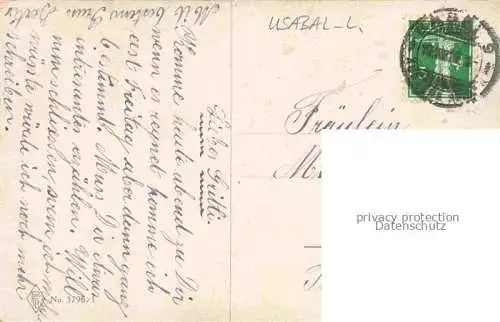 Liebes Gritli.
Komme heute abend zu Dir
wenn es regnet komme ich
erst Freitag aber dann ganz
bestimmt. Muss Dir etwas
intressantes erzählen. Will
nun schliessen, wenn ich nicht
müde würde ich noch mehr
schreiben.
Mit bestem Gruss
USABAL-L.
Fräulein
M
privacy protection
Datenschutz
No. 3796/1